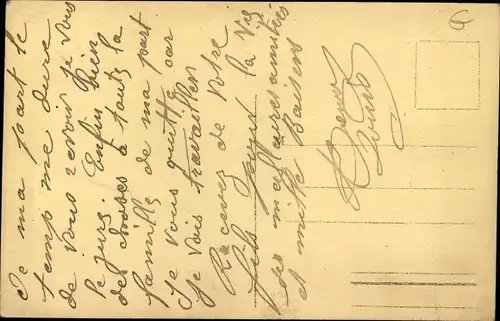 Je ma part le
temp me dure
de vous revoir je vous
le jure. Enfin Bien
des choses a toute la
famille de ma part
Je vous quitte car
Je vais travailler
Recevez de votre
fils pour la vie
des meilleures amitiés
et mille Baisers